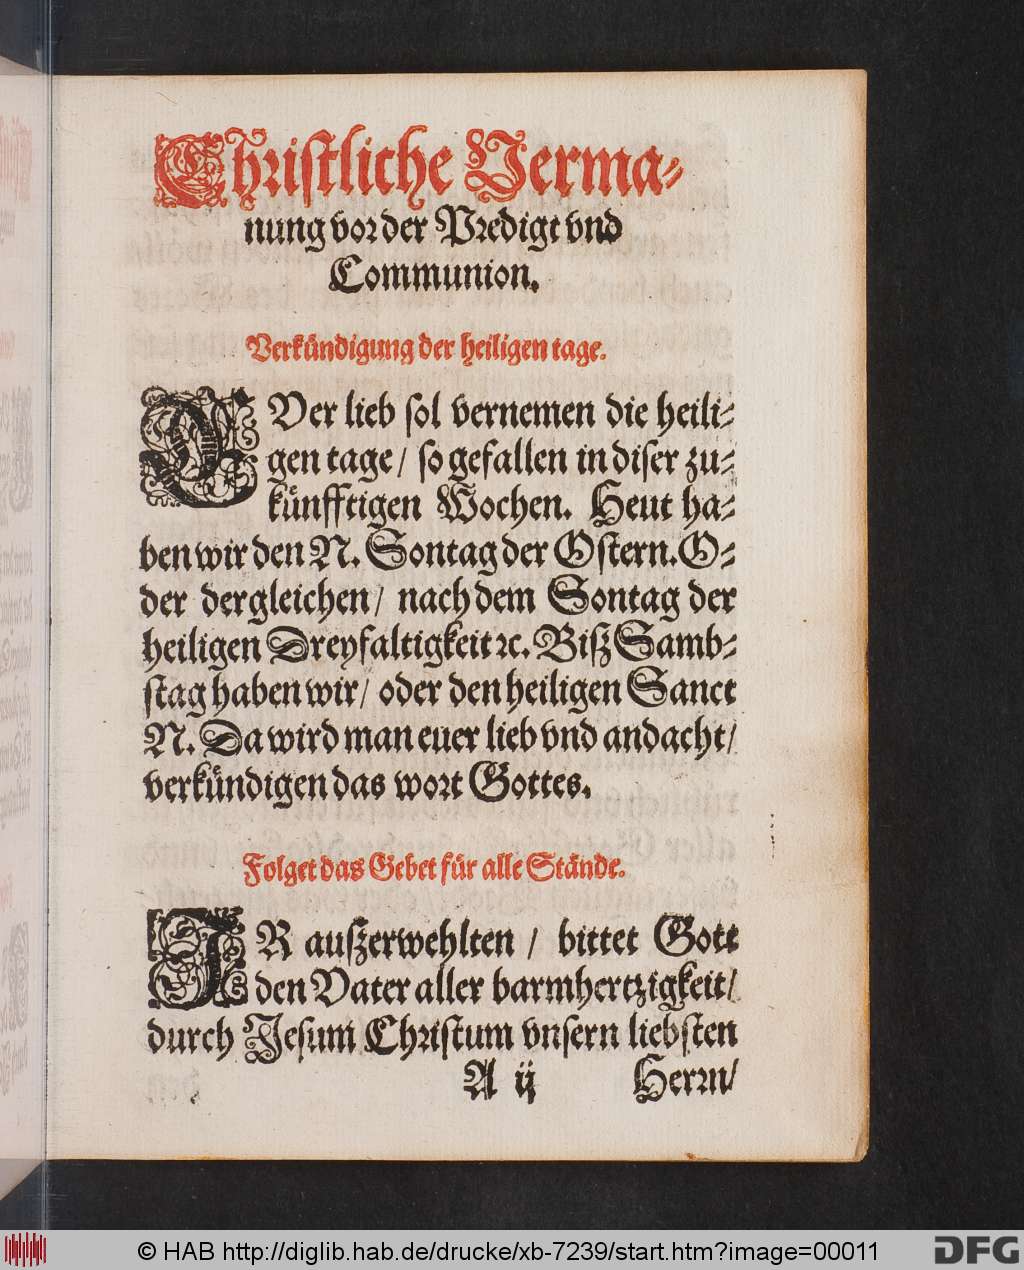 Christliche Verma-
nung vor der Predigt vnd
Communion.
Verkündigung der heiligen tage.
EVer lieb sol vernemen die heili-
gen tage / so gefallen in diser zu-
künfftigen Wochen. Heut ha-
ben wir den N. Sontag der Ostern. O-
der dergleichen / nach dem Sontag der
heiligen Dreyfaltigkeit ꝛc. Biß Samb-
stag haben wir / oder den heiligen Sanct
N. Da wird man euer lieb vnd andacht /
verkündigen das wort Gottes.
Folget das Gebet für alle Stände.
IR außerwehlten / bittet Gott
den Vater aller barmhertzigkeit /
durch Jesum Christum vnsern liebsten
A ij Herrn /
© HAB http://diglib.hab.de/drucke/xb-7239/start.htm?image=00011
DFG